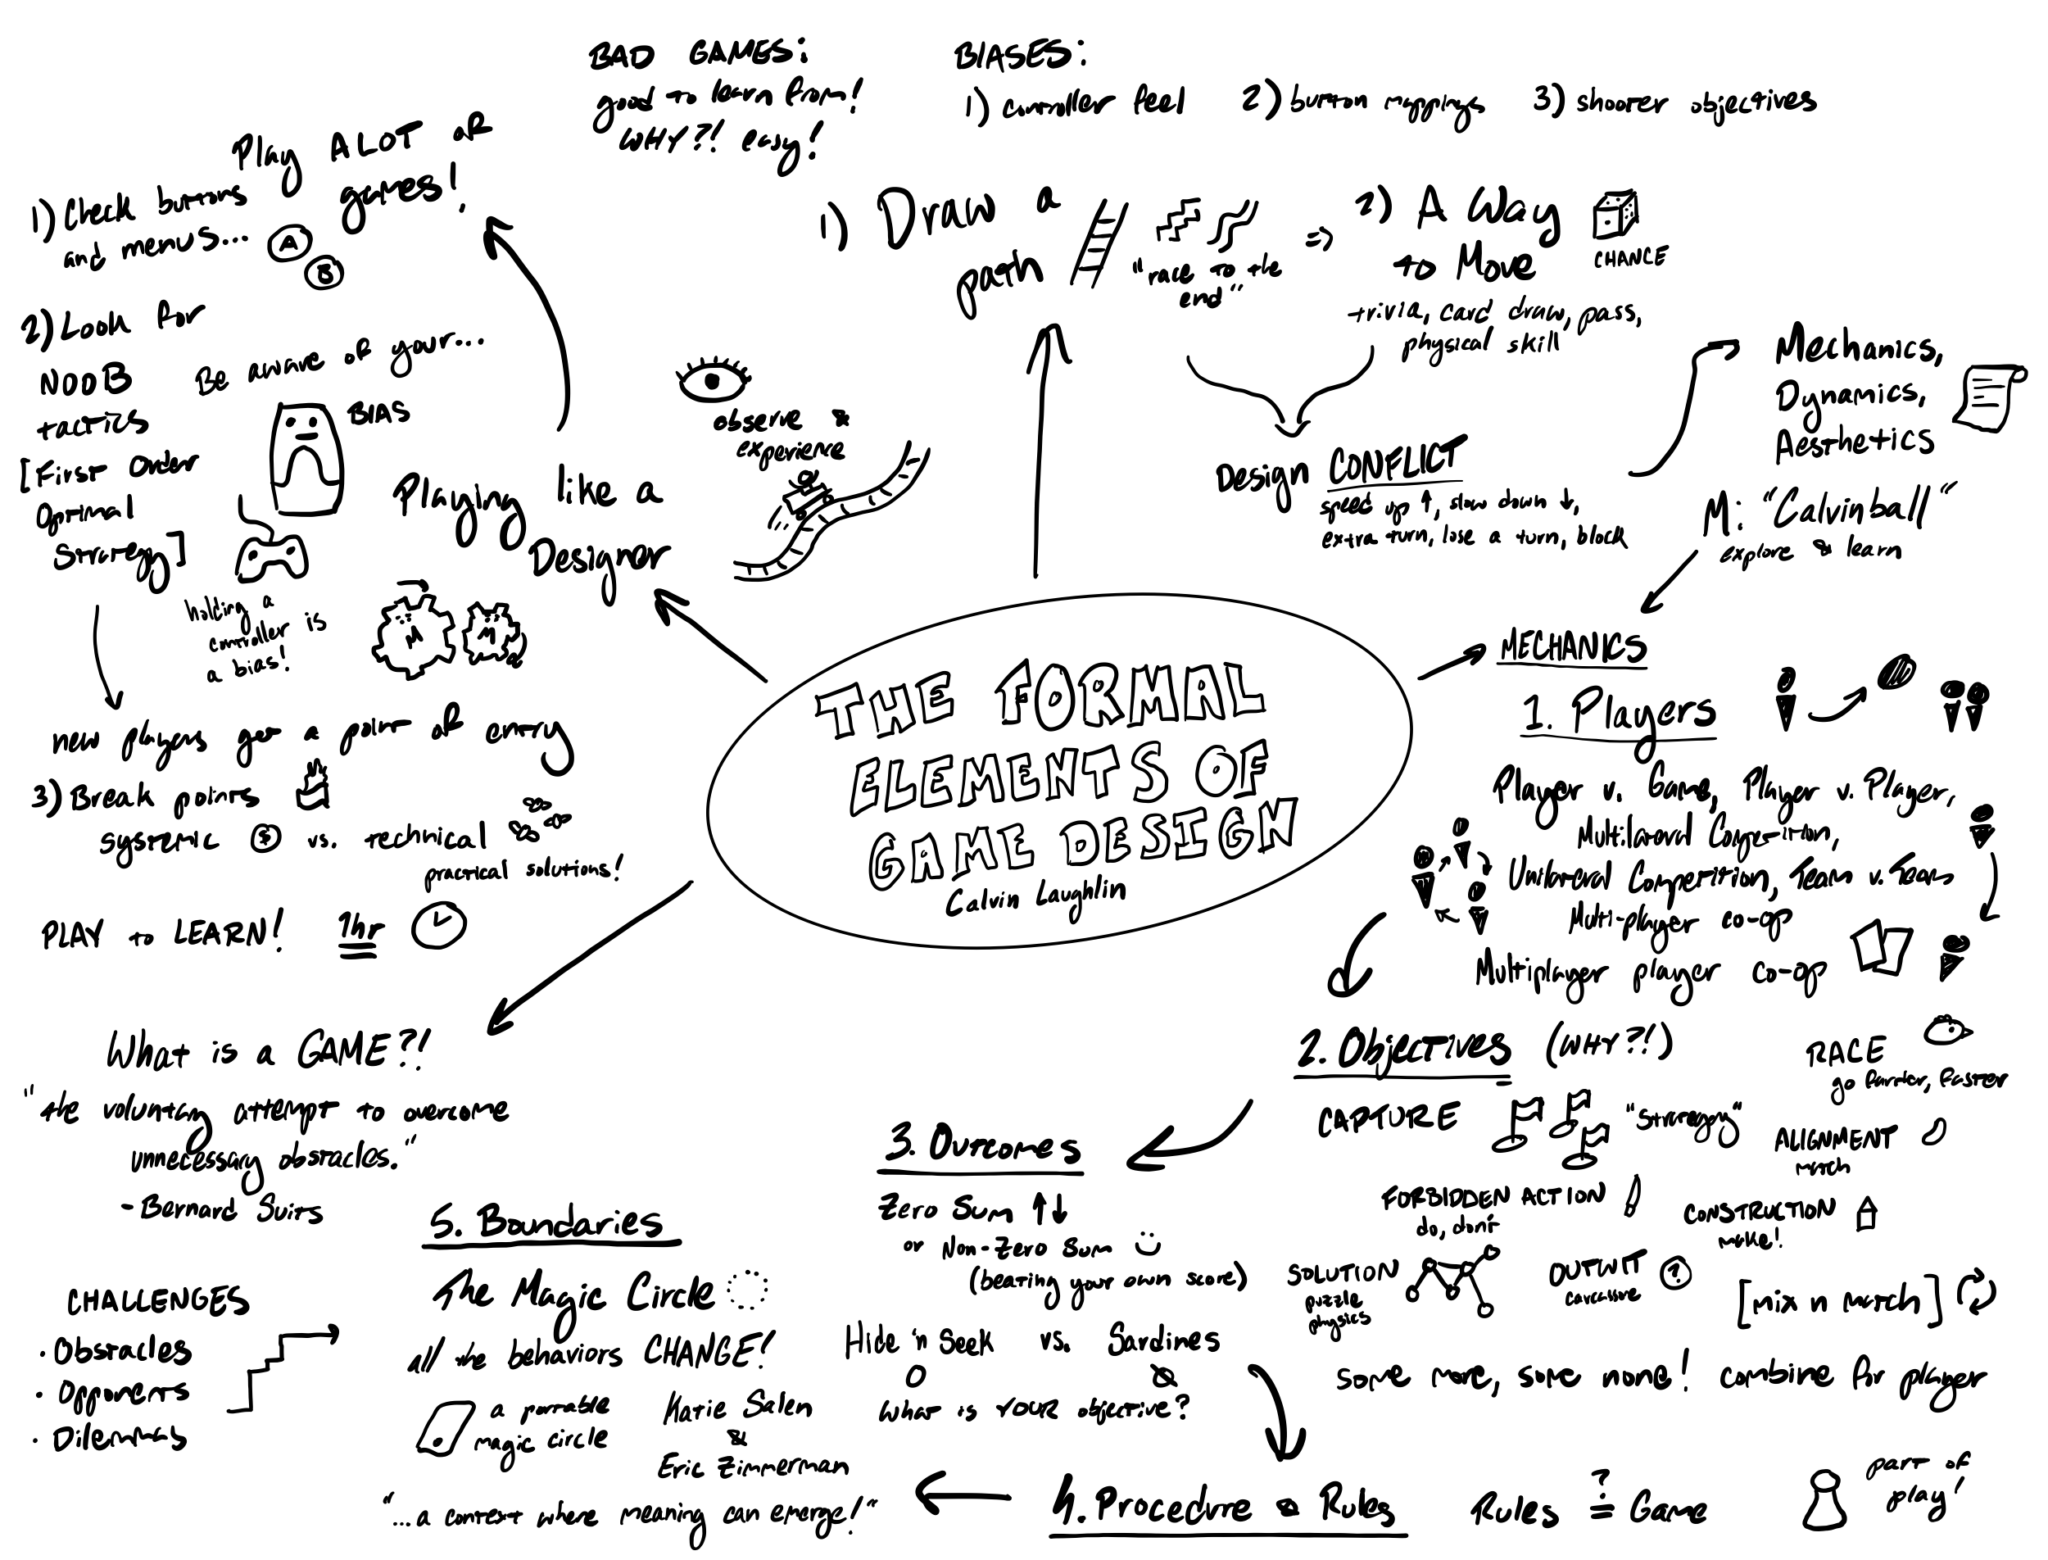 THE FORMAL
ELEMENTS OF
GAME DESIGN
Calvin Laughlin
BAD GAMES:
good to learn from!
WHY?! easy!
BIASES:
1) controller feel 2) button mappings 3) shooter objectives
Play ALOT of
games!
1) Check buttons
and menus...
A
B
2) Look for
NOOB
tactics
[First Order
Optimal
Strategy]
Be aware of your...
BIAS
holding a
controller is
a bias!
Playing like a
Designer
observe &
experience
M M
new players get a point of entry
3) Break points
systemic $ vs. technical
practical solutions!
PLAY to LEARN! 1hr
1) Draw a
path
"race to the
end"
=> 2) A Way
to Move
CHANCE
trivia, card draw, pass,
physical skill
Design CONFLICT
speed up ↑, slow down ↓,
extra turn, lose a turn, block
Mechanics,
Dynamics,
Aesthetics
M: "Calvinball"
explore & learn
MECHANICS
1. Players
Player v. Game, Player v. Player,
Multilateral Competition,
Unilateral Competition, Team v. Team
Multi-player co-op
Multiplayer player co-op
2. Objectives (WHY?!)
CAPTURE "Strategy"
RACE
go farther, faster
ALIGNMENT
match
FORBIDDEN ACTION
do, don't
CONSTRUCTION
make!
SOLUTION
puzzle
physics
OUTWIT ?
carcassone
[mix n match]
some more, some none! combine for player
3. Outcomes
Zero Sum ↑↓
or Non-Zero Sum
(beating your own score)
Hide 'n Seek vs. Sardines
What is YOUR objective?
4. Procedure & Rules
Rules ?= Game
part of
play!
5. Boundaries
The Magic Circle
all the behaviors CHANGE!
a portable
magic circle
Katie Salen
&
Eric Zimmerman
"...a context where meaning can emerge!"
What is a GAME?!
"the voluntary attempt to overcome
unnecessary obstacles."
- Bernard Suits
CHALLENGES
· Obstacles
· Opponents
· Dilemmas